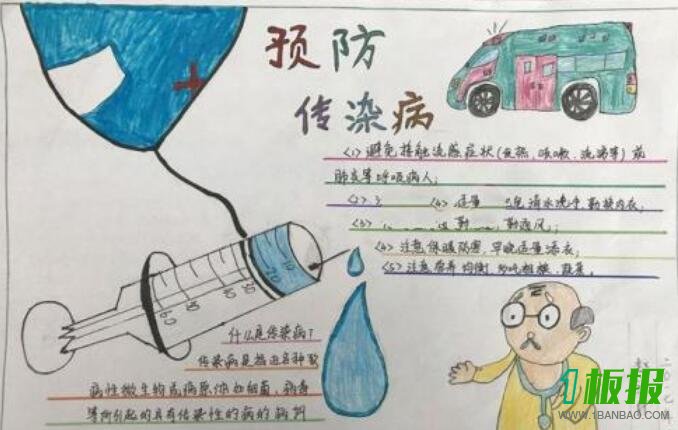 预防
传染病
<1>避免接触流感症状(发热、咳嗽、流涕等)或
肺炎等呼吸病人;
<2>
清水洗手,勤换内衣,
<3>
勤通风;
<4>注意保暖防寒,早晚适量添衣;
<5>注意营养均衡,
蔬菜,
10
20
30
50
60
什么是传染病?
传染病是指由各种致
病性微生物或病原体如细菌,病毒
等所引起的具有传染性的疾病
1板报
WWW.1BANBAO.COM